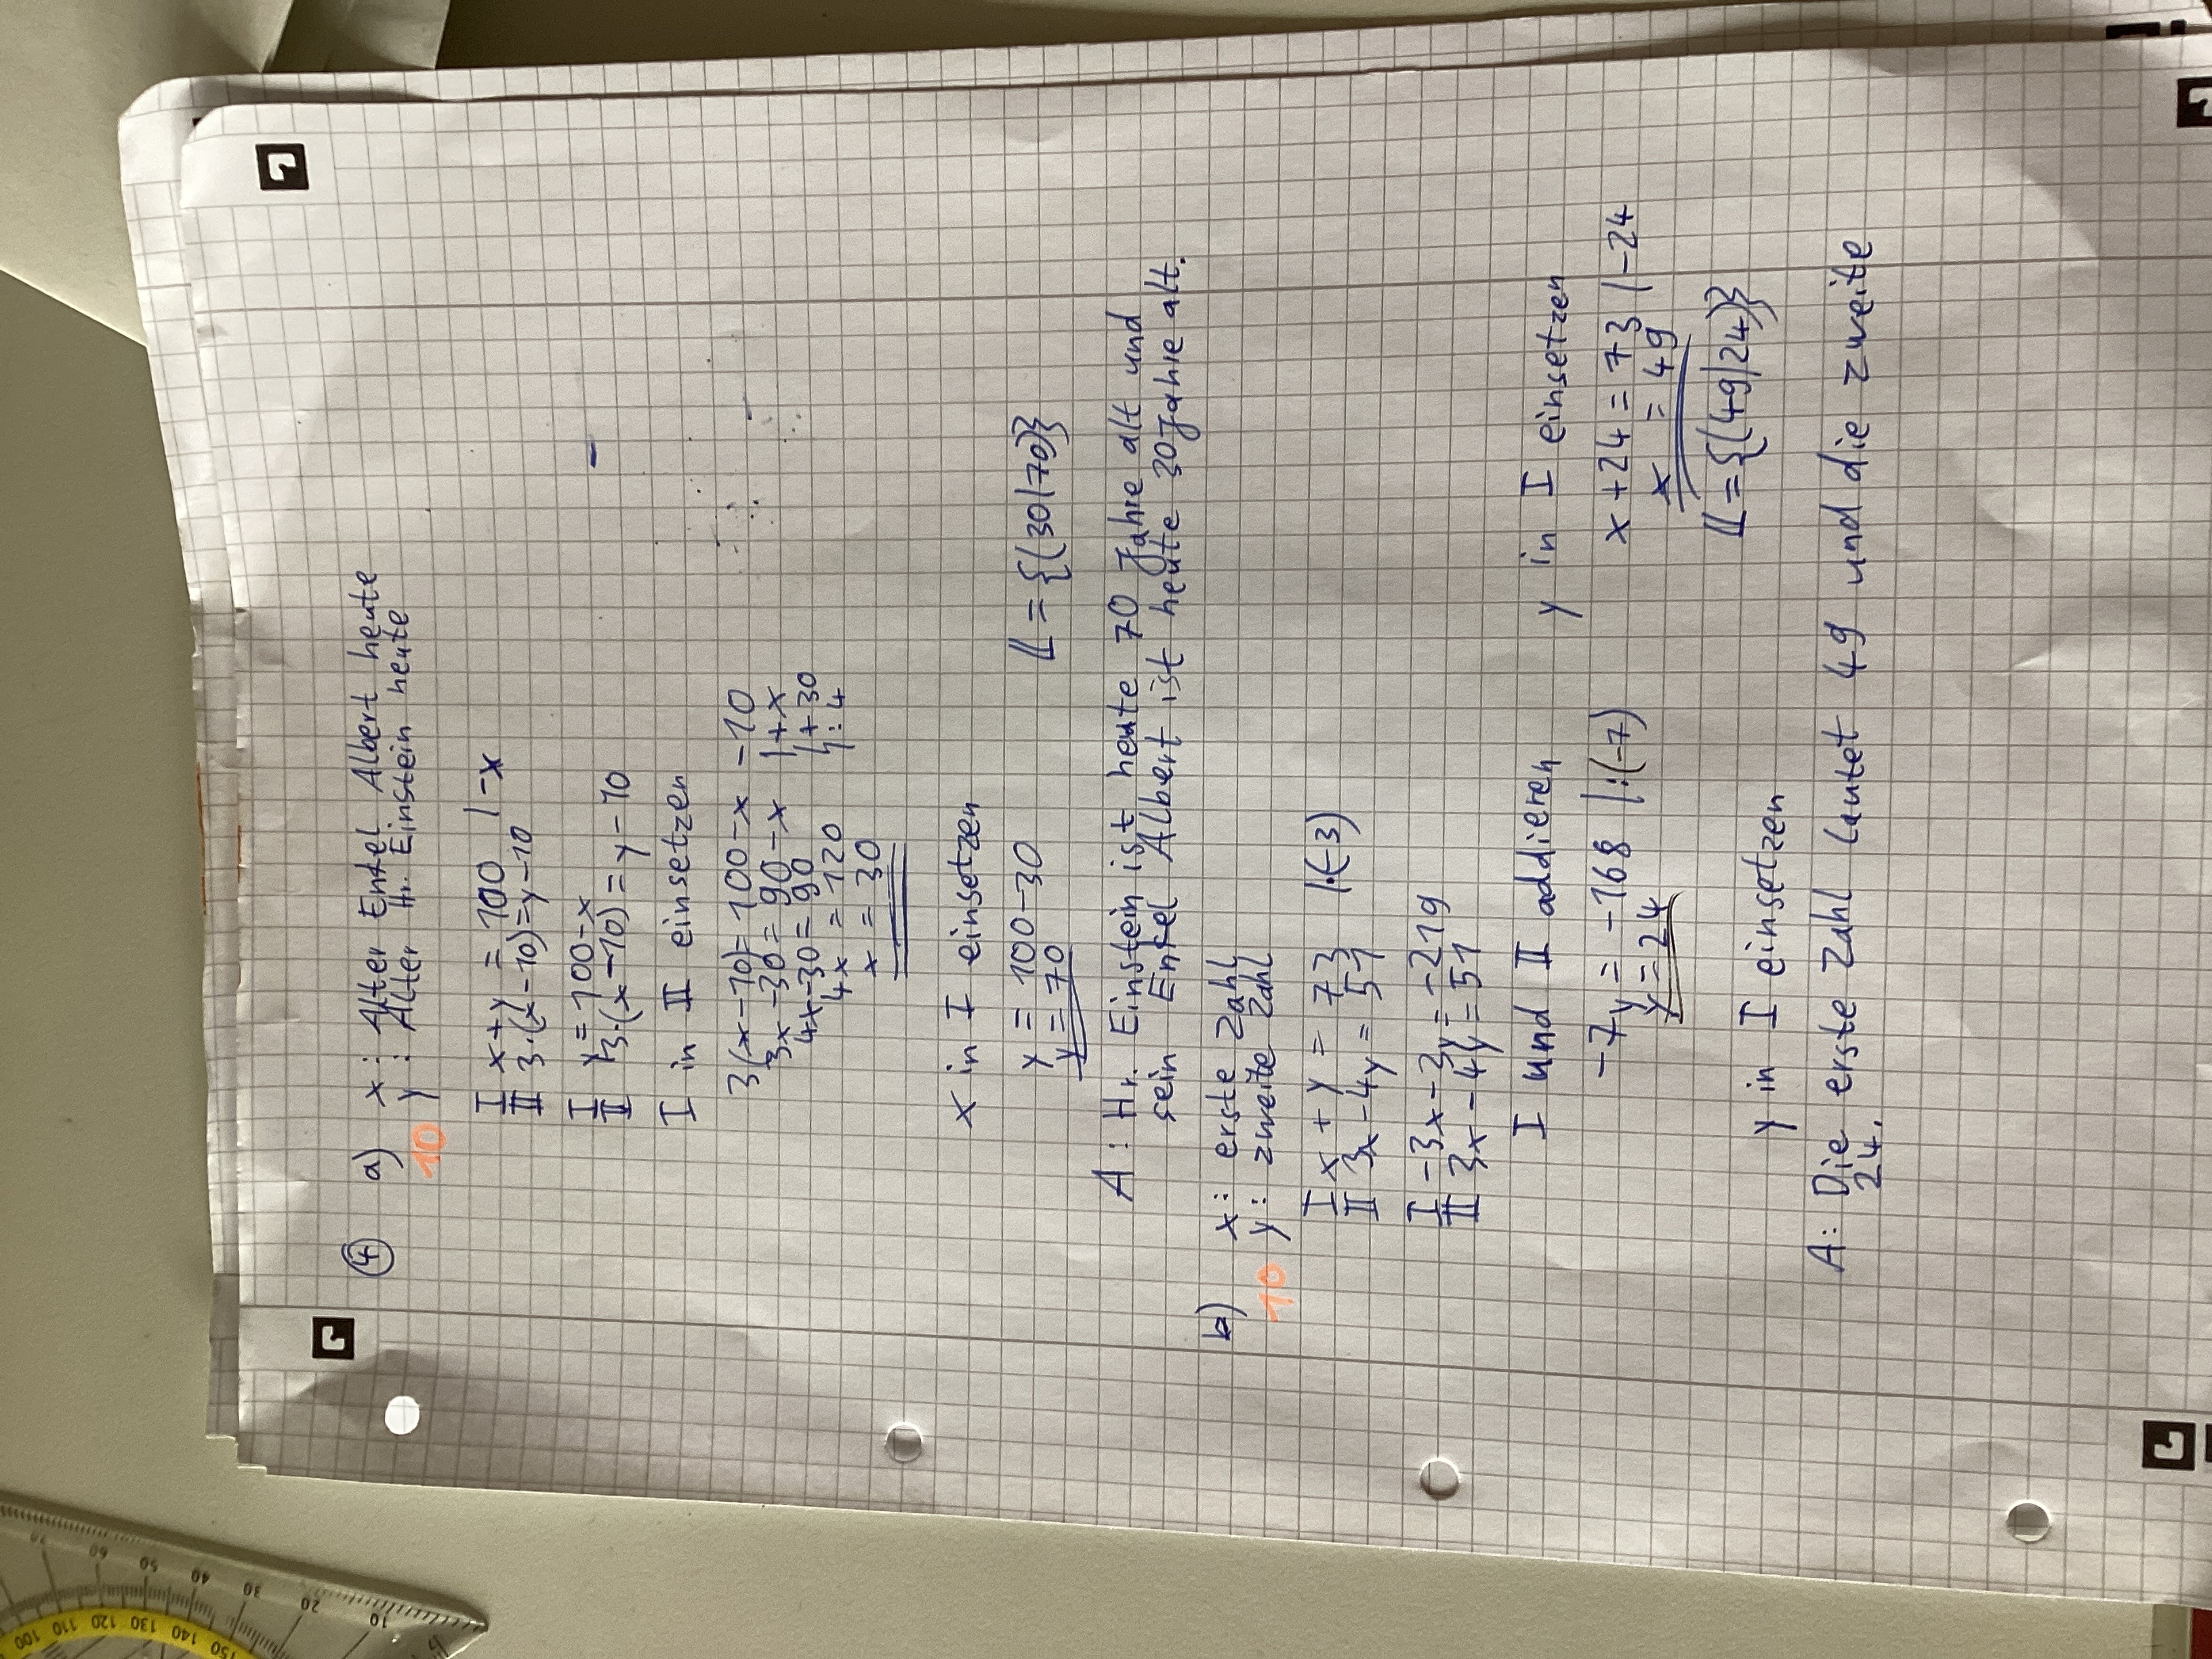 ④ a) x: Alter Enkel Albert heute
10 y: Alter Hr. Einstein heute
I x + y = 100 | -x
II 3·(x-10)=y-10
I y=100-x
II 3·(x-10)=y-10
I in II einsetzen
3(x-10)=100-x-10
3x-30=90-x |+x
4x-30=90 |+30
4x=120 |:4
x=30
x in I einsetzen
y=100-30
y=70
L={(30|70)}
A: Hr. Einstein ist heute 70 Jahre alt und
sein Enkel Albert ist heute 30 Jahre alt.
b) x: erste Zahl
10 y: zweite Zahl
I x + y = 73 |·(-3)
II 3x-4y=51
I -3x-3y=-219
II 3x-4y=51
I und II addieren
-7y=-168 |:(-7)
y=24
y in I einsetzen
y in I einsetzen
x+24=73 |-24
x =49
L={(49|24)}
A: Die erste Zahl lautet 49 und die zweite
24.
70
60
50
40
30
20
10
100 110 120 130 140 150